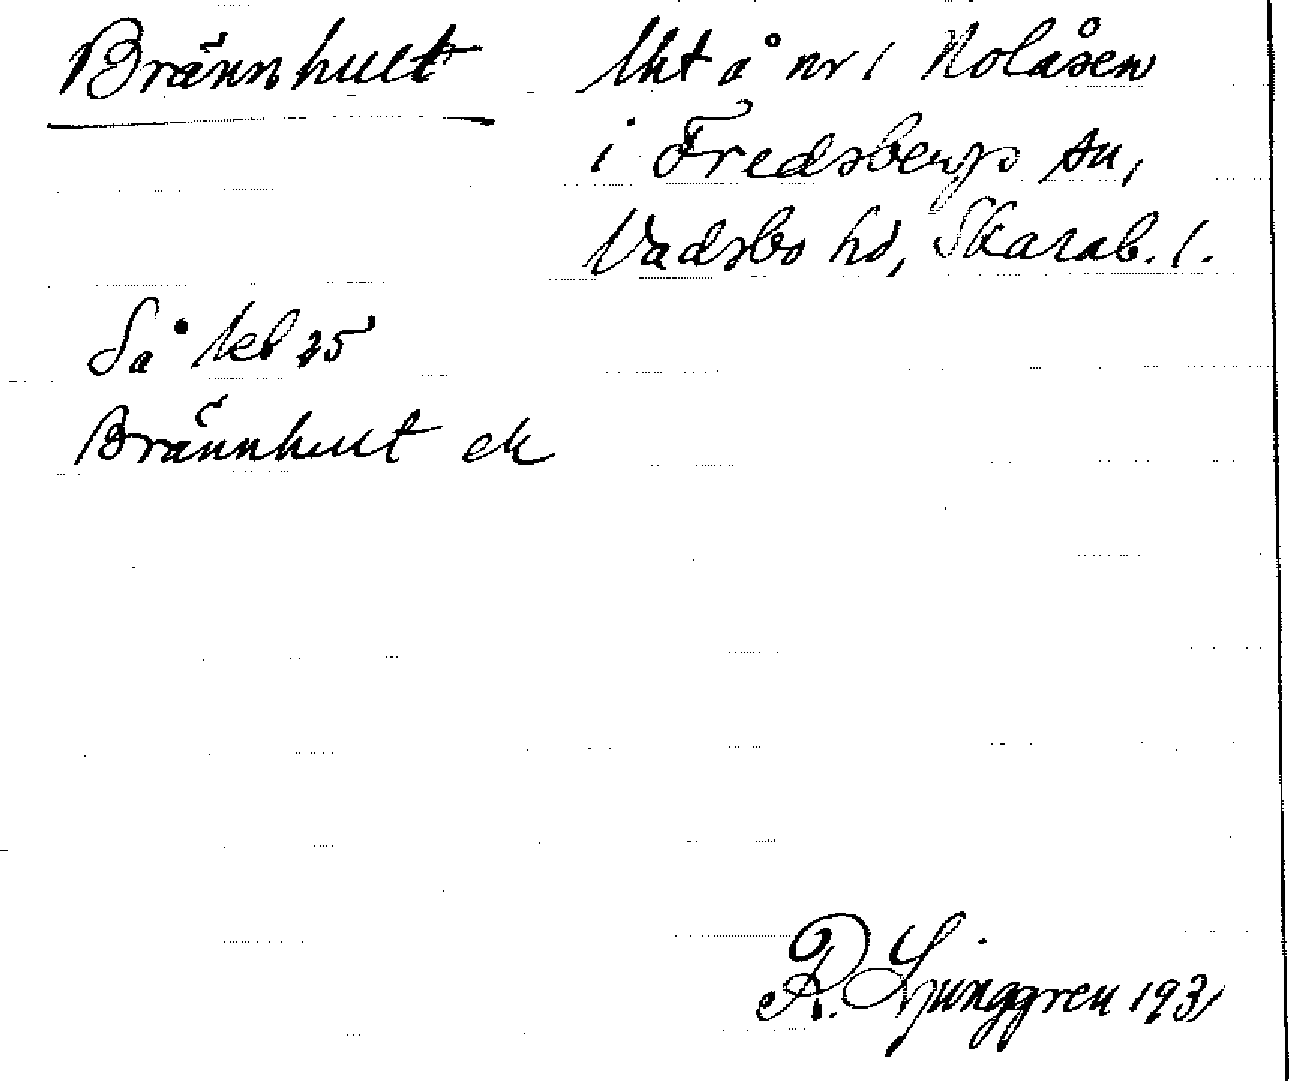 Brännhult lht å nr 1 Nolåsen
i Fredsbergs sn,
Vadsbo hd, Skarab. l.
Så kb 35
Brännhult ek
R. Ljunggren 1931